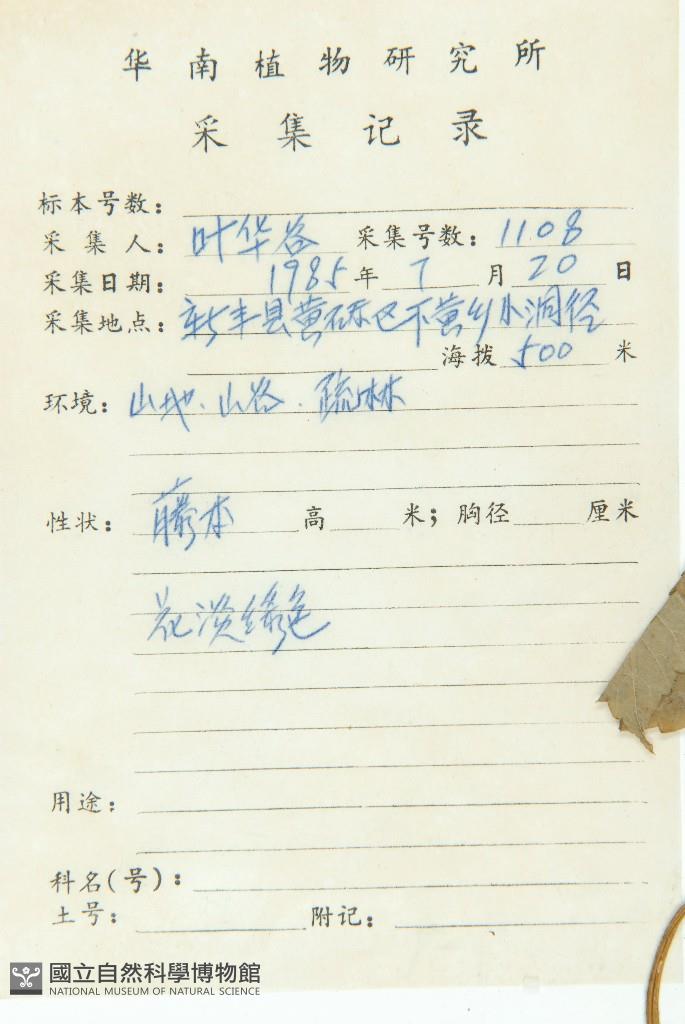 华南植物研究所
采集记录
标本号数:
采集人: 叶华谷 采集号数: 1108
采集日期: 1985年 7 月 20 日
采集地点: 新丰县黄磜区下黄乡小洞径
海拨 500 米
环境: 山地.山谷.疏林
性状: 藤本 高 米; 胸径 厘米
花淡绿色
用途:
科名(号):
土号: 附记:
國立自然科學博物館
NATIONAL MUSEUM OF NATURAL SCIENCE